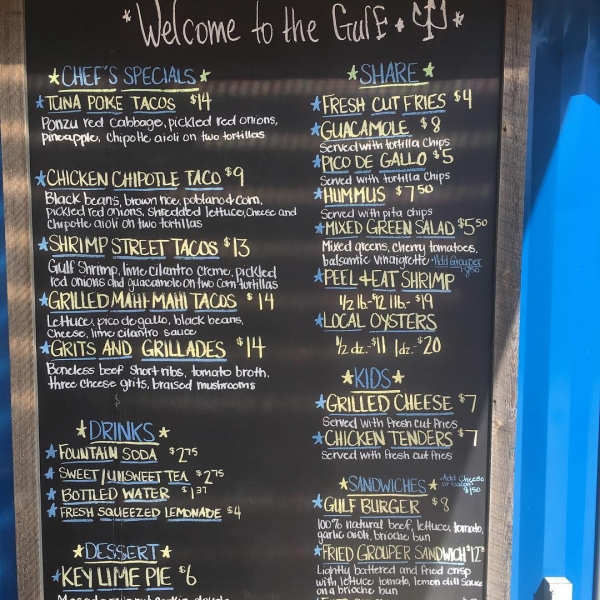 Welcome to the Gulf
CHEF'S SPECIALS
TUNA POKE TACOS $14
Ponzu red cabbage, pickled red onions,
pineapple, Chipotle aioli on two tortillas
CHICKEN CHIPOTLE TACO $9
Black beans, brown rice, poblano & corn,
pickled red onions, shredded lettuce, cheese and
chipotle aioli on two tortillas
SHRIMP STREET TACOS $13
Gulf Shrimp, lime cilantro creme, pickled
red onions and guacamole on two corn tortillas
GRILLED MAHI-MAHI TACOS $14
Lettuce, pico de gallo, black beans,
cheese, lime cilantro sauce
GRITS AND GRILLADES $14
Boneless beef short ribs, tomato broth,
three cheese grits, braised mushrooms
DRINKS
FOUNTAIN SODA $2.75
SWEET/UNSWEET TEA $2.75
BOTTLED WATER $1.37
FRESH SQUEEZED LEMONADE $4
DESSERT
KEY LIME PIE $6
SHARE
FRESH CUT FRIES $4
GUACAMOLE $8
Served with tortilla chips
PICO DE GALLO $5
Served with tortilla chips
HUMMUS $7.50
Served with pita chips
MIXED GREEN SALAD $5.50
Mixed greens, cherry tomatoes,
balsamic vinaigrette *Add Grouper
$8.50
PEEL + EAT SHRIMP
1/2 lb.-$12 1 lb.- $19
LOCAL OYSTERS
1/2 dz.-$11 1 dz.-$20
KIDS
GRILLED CHEESE $7
Served with fresh cut fries
CHICKEN TENDERS $7
Served with fresh cut fries
SANDWICHES
-Add Cheese
or bacon
$1.50
GULF BURGER $8
100% natural beef, lettuce, tomato,
garlic aioli, brioche bun
FRIED GROUPER SANDWICH $12
Lightly battered and fried crisp
with lettuce, tomato, lemon dill sauce
on a brioche bun